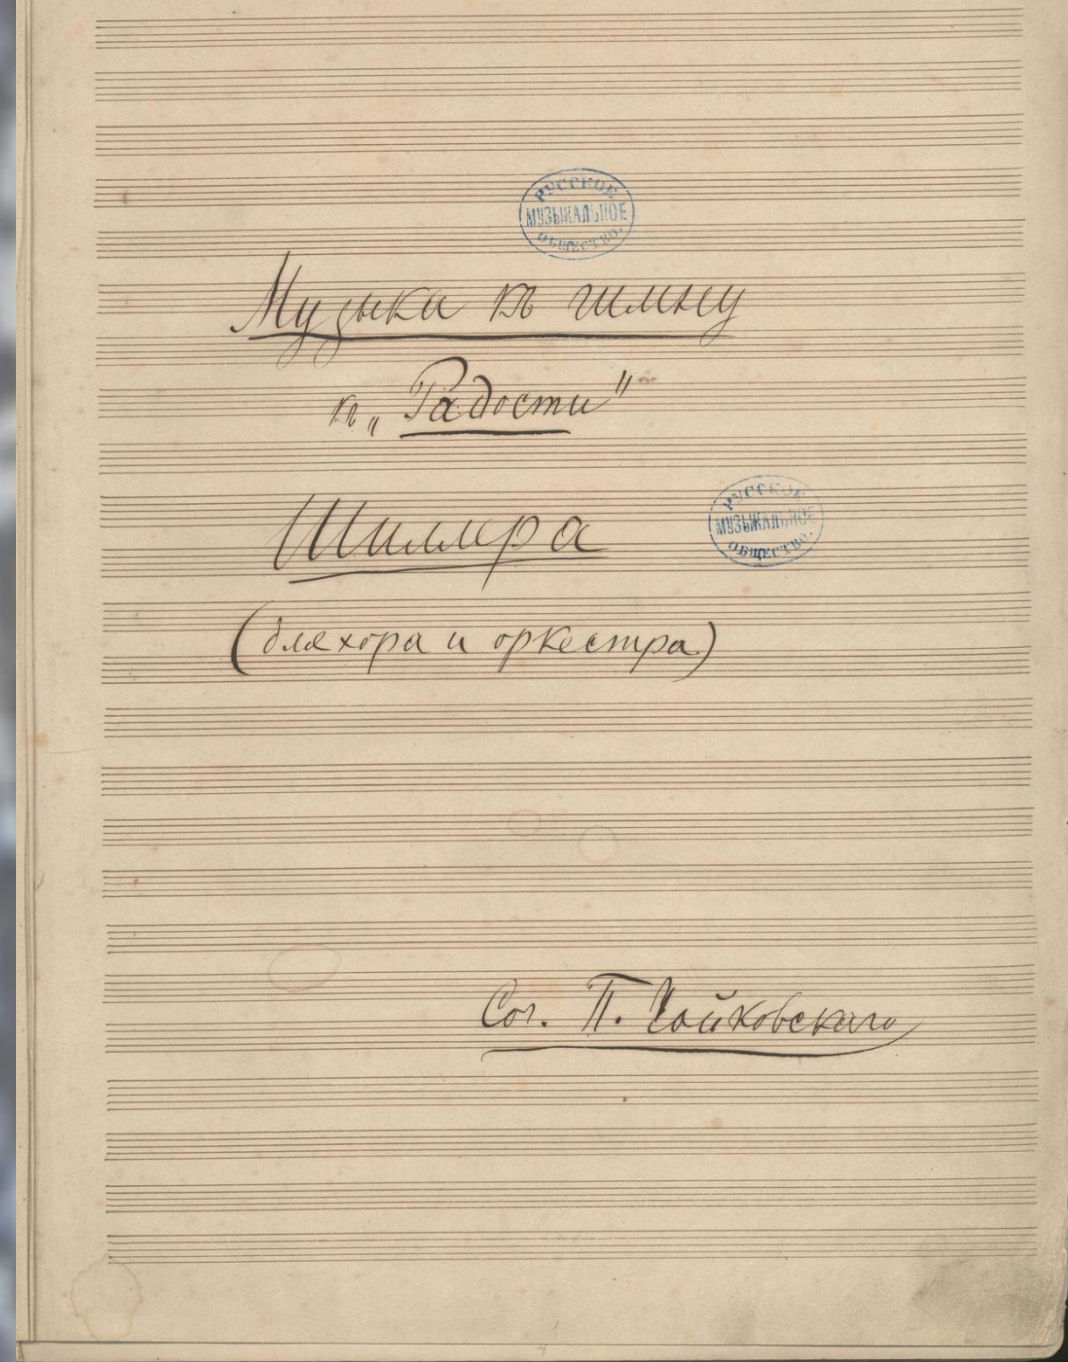 РУССКОЕ
МУЗЫКАЛЬНОЕ
ОБЩЕСТВО.
Музыка къ гимну
къ „Радости"
Шиллера
РУССКОЕ
МУЗЫКАЛЬНОЕ
ОБЩЕСТВО.
(для хора и оркестра)
Соч. П. Чайковскаго